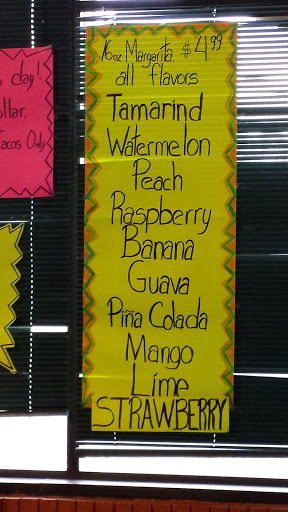 day!
llar.
Tacos Only
16oz Margarita. $4.99
all flavors
Tamarind
Watermelon
Peach
Raspberry
Banana
Guava
Piña Colada
Mango
Lime
STRAWBERRY